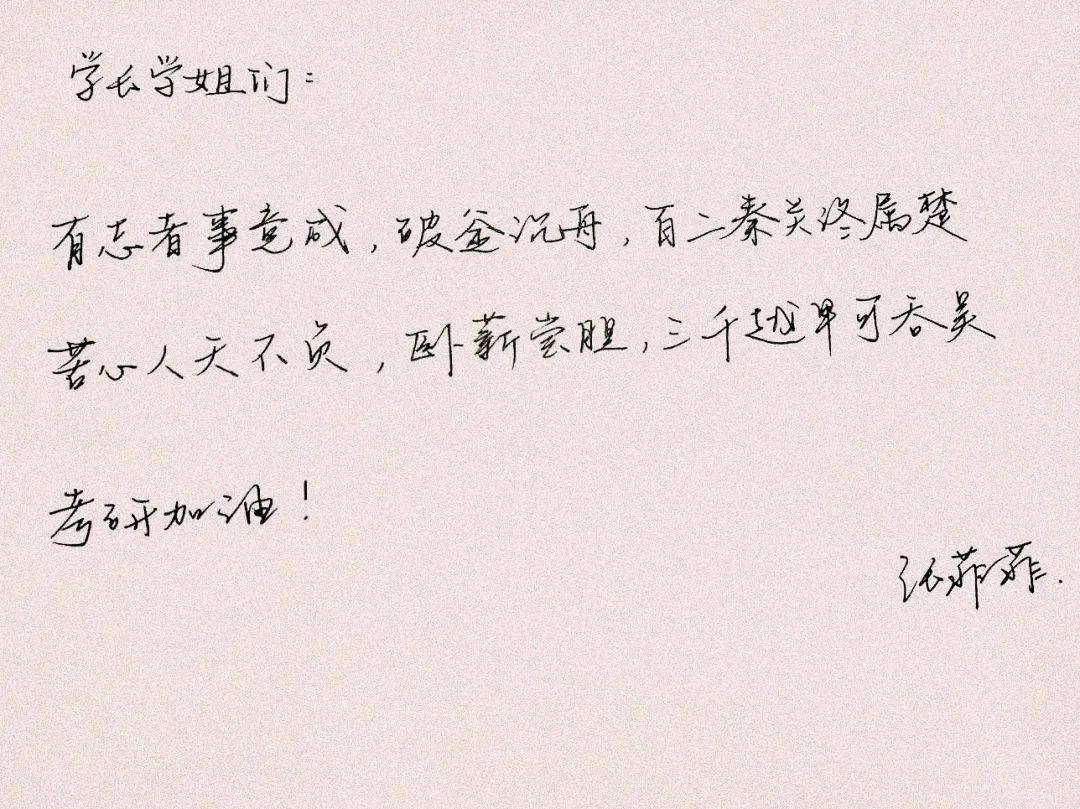 学长学姐们：
有志者事竟成，破釜沉舟，百二秦关终属楚
苦心人天不负，卧薪尝胆，三千越甲可吞吴
考研加油！
张菲菲.